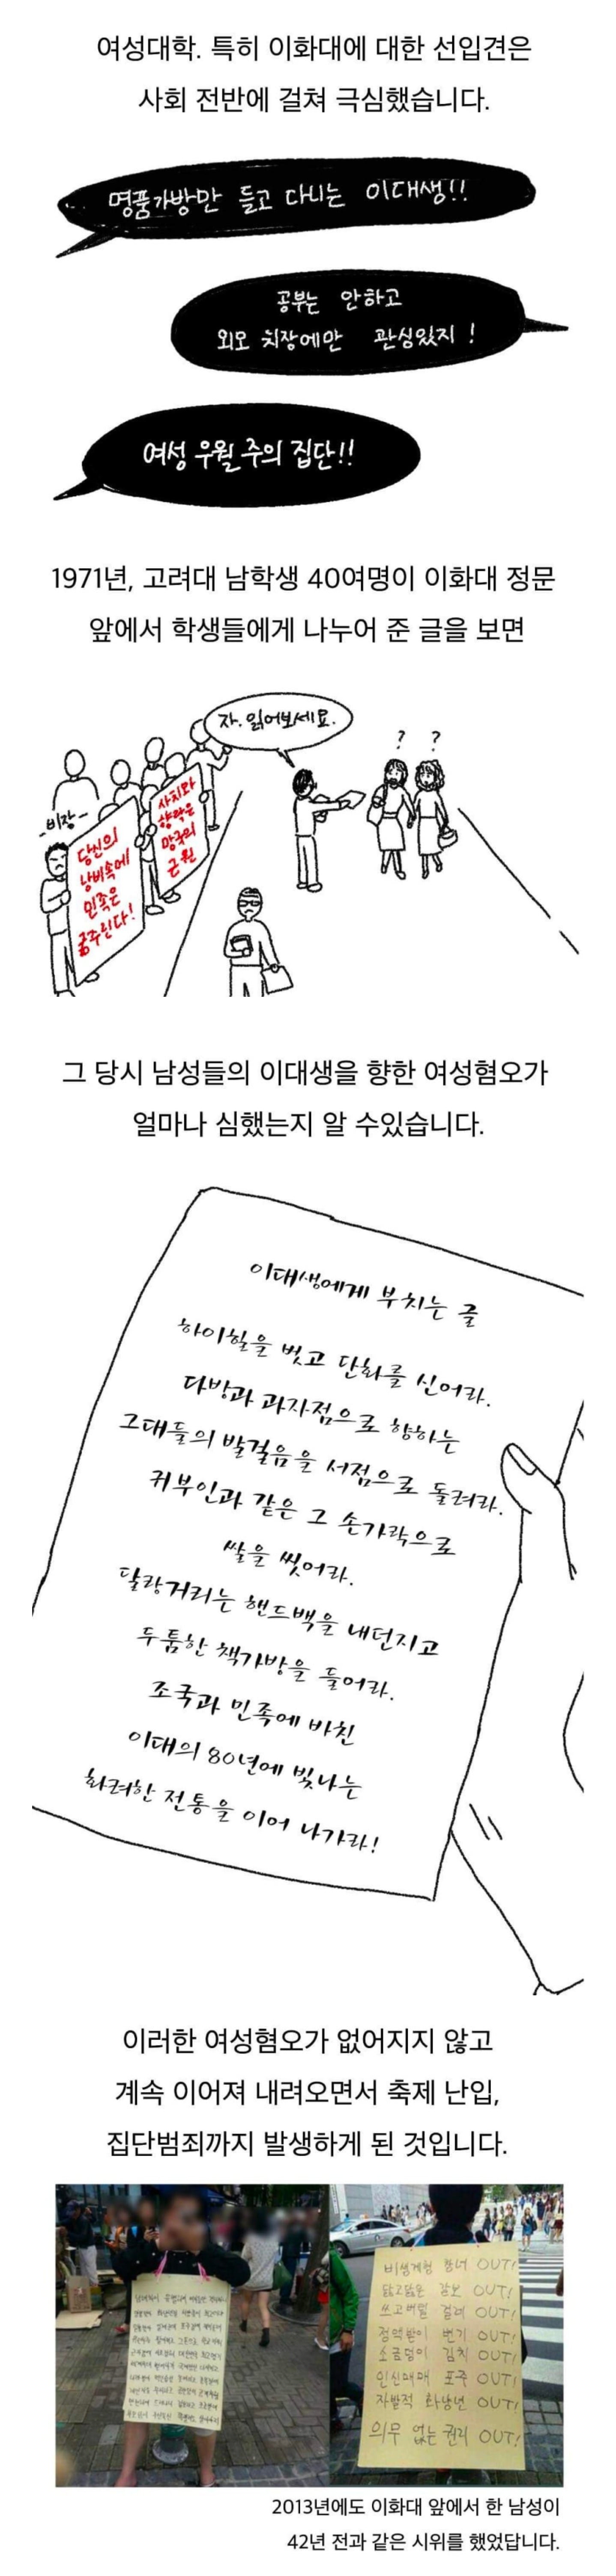 여성대학. 특히 이화대에 대한 선입견은
사회 전반에 걸쳐 극심했습니다.
명품가방만 들고 다니는 이대생!!
공부는 안하고
외모 치장에만 관심있지 !
여성 우월주의 집단!!
1971년, 고려대 남학생 40여명이 이화대 정문
앞에서 학생들에게 나누어 준 글을 보면
자. 읽어보세요.
? ?
-비장-
당신의
낭비속에
민족은
굶주린다!
사치와
향락은
망국의
근원
그 당시 남성들의 이대생을 향한 여성혐오가
얼마나 심했는지 알 수있습니다.
이대생에게 부치는 글
하이힐을 벗고 단화를 신어라.
다방과 과자점으로 향하는
그대들의 발걸음을 서점으로 돌려라.
귀부인과 같은 그 손가락으로
쌀을 씻어라.
달랑거리는 핸드백을 내던지고
두툼한 책가방을 들어라.
조국과 민족에 바친
이대의 80년에 빛나는
화려한 전통을 이어 나가라!
이러한 여성혐오가 없어지지 않고
계속 이어져 내려오면서 축제 난입,
집단범죄까지 발생하게 된 것입니다.
비생계형 창녀 OUT!
닳고닳은 갈보 OUT!
쓰고버릴 걸레 OUT!
정액받이 변기 OUT!
소금덩이 김치 OUT!
인신매매 포주 OUT!
자발적 화냥년 OUT!
의무 없는 권리 OUT!
2013년에도 이화대 앞에서 한 남성이
42년 전과 같은 시위를 했었답니다.